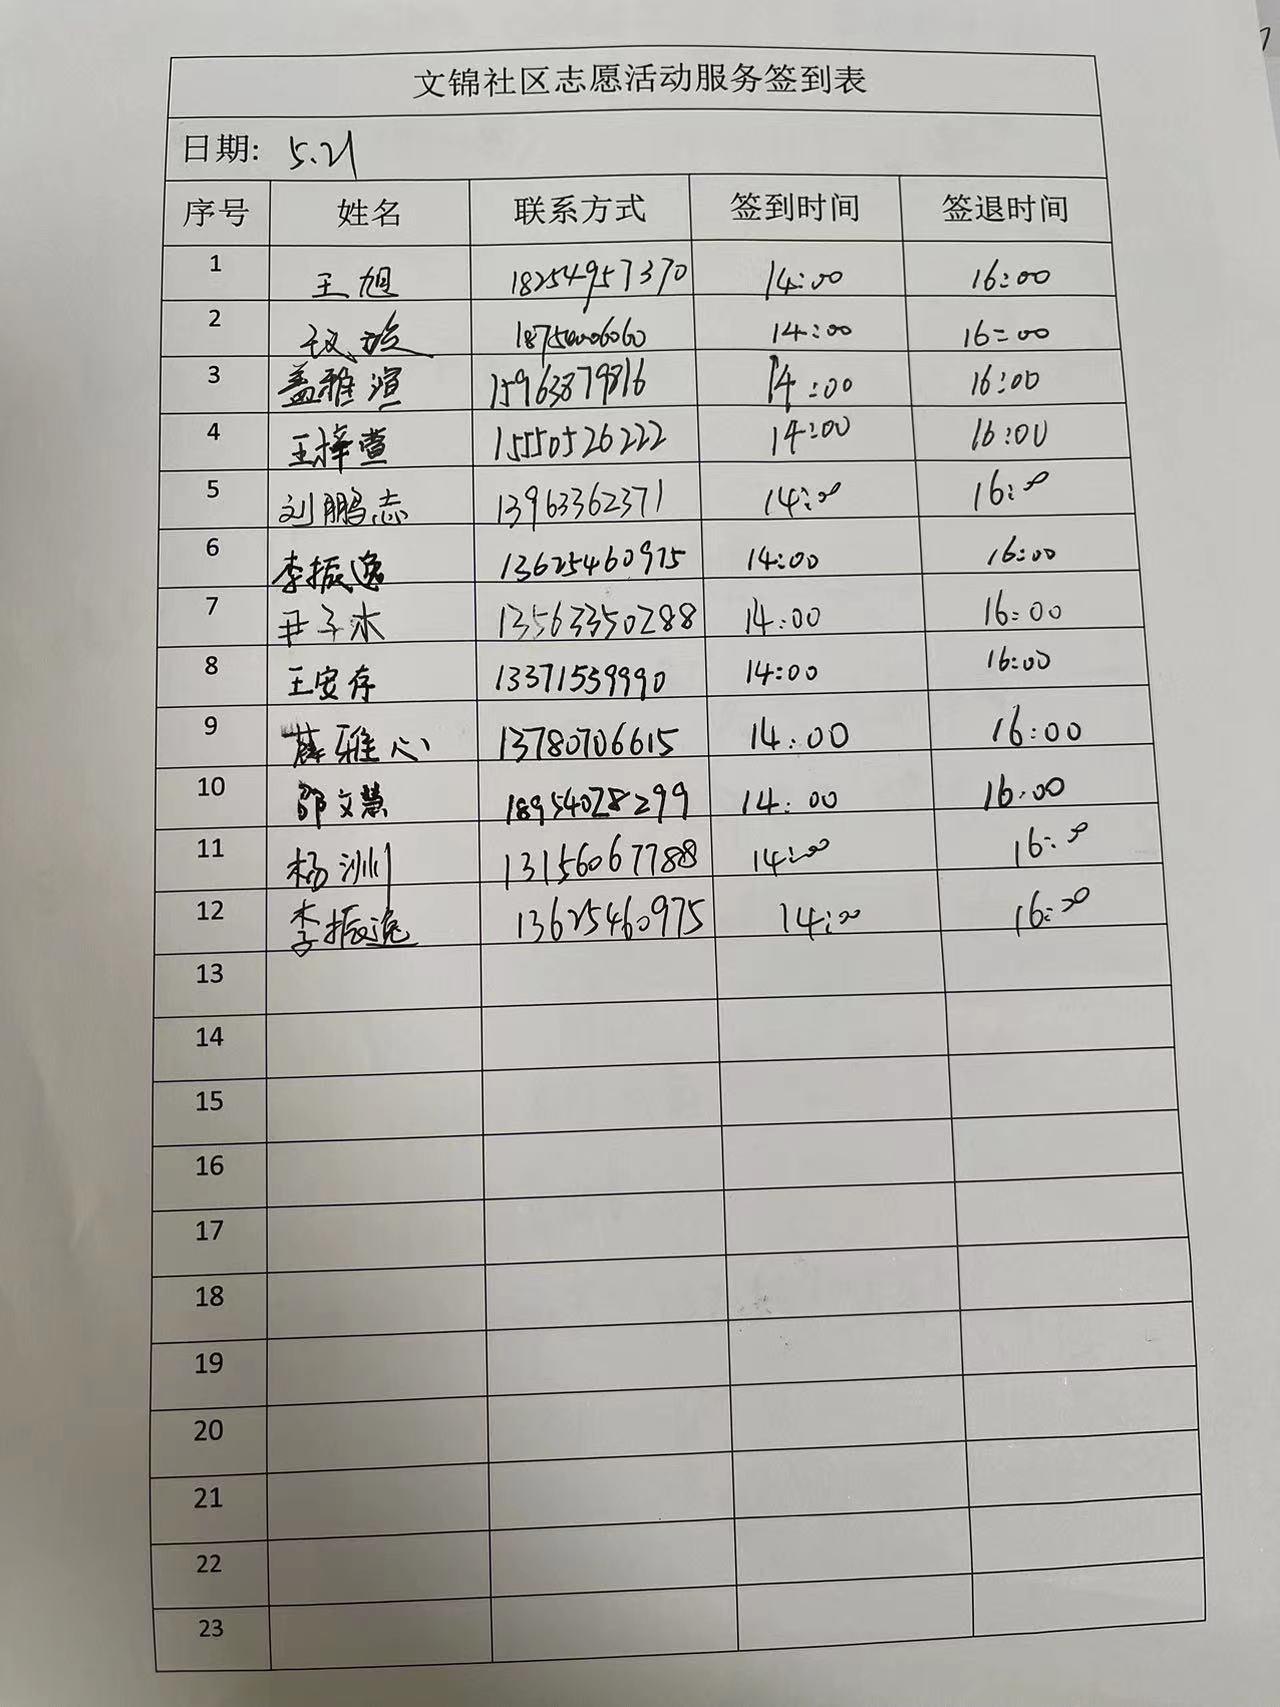 文锦社区志愿活动服务签到表
日期: 5.21
序号 姓名 联系方式 签到时间 签退时间
1 王旭 18254957370 14:00 16:00
2 14:00 16:00
3 盖雅渲 15963879816 14:00 16:00
4 王梓萱 15550526222 14:00 16:00
5 刘鹏志 13963362371 14:00 16:00
6 李振逸 13625460975 14:00 16:00
7 尹子木 13563350288 14:00 16:00
8 王安存 13371539990 14:00 16:00
9 薛雅心 13780706615 14:00 16:00
10 邵文慧 18954028299 14:00 16:00
11 杨洲 13156067788 14:00 16:00
12 李振逸 13625460975 14:00 16:00
13
14
15
16
17
18
19
20
21
22
23